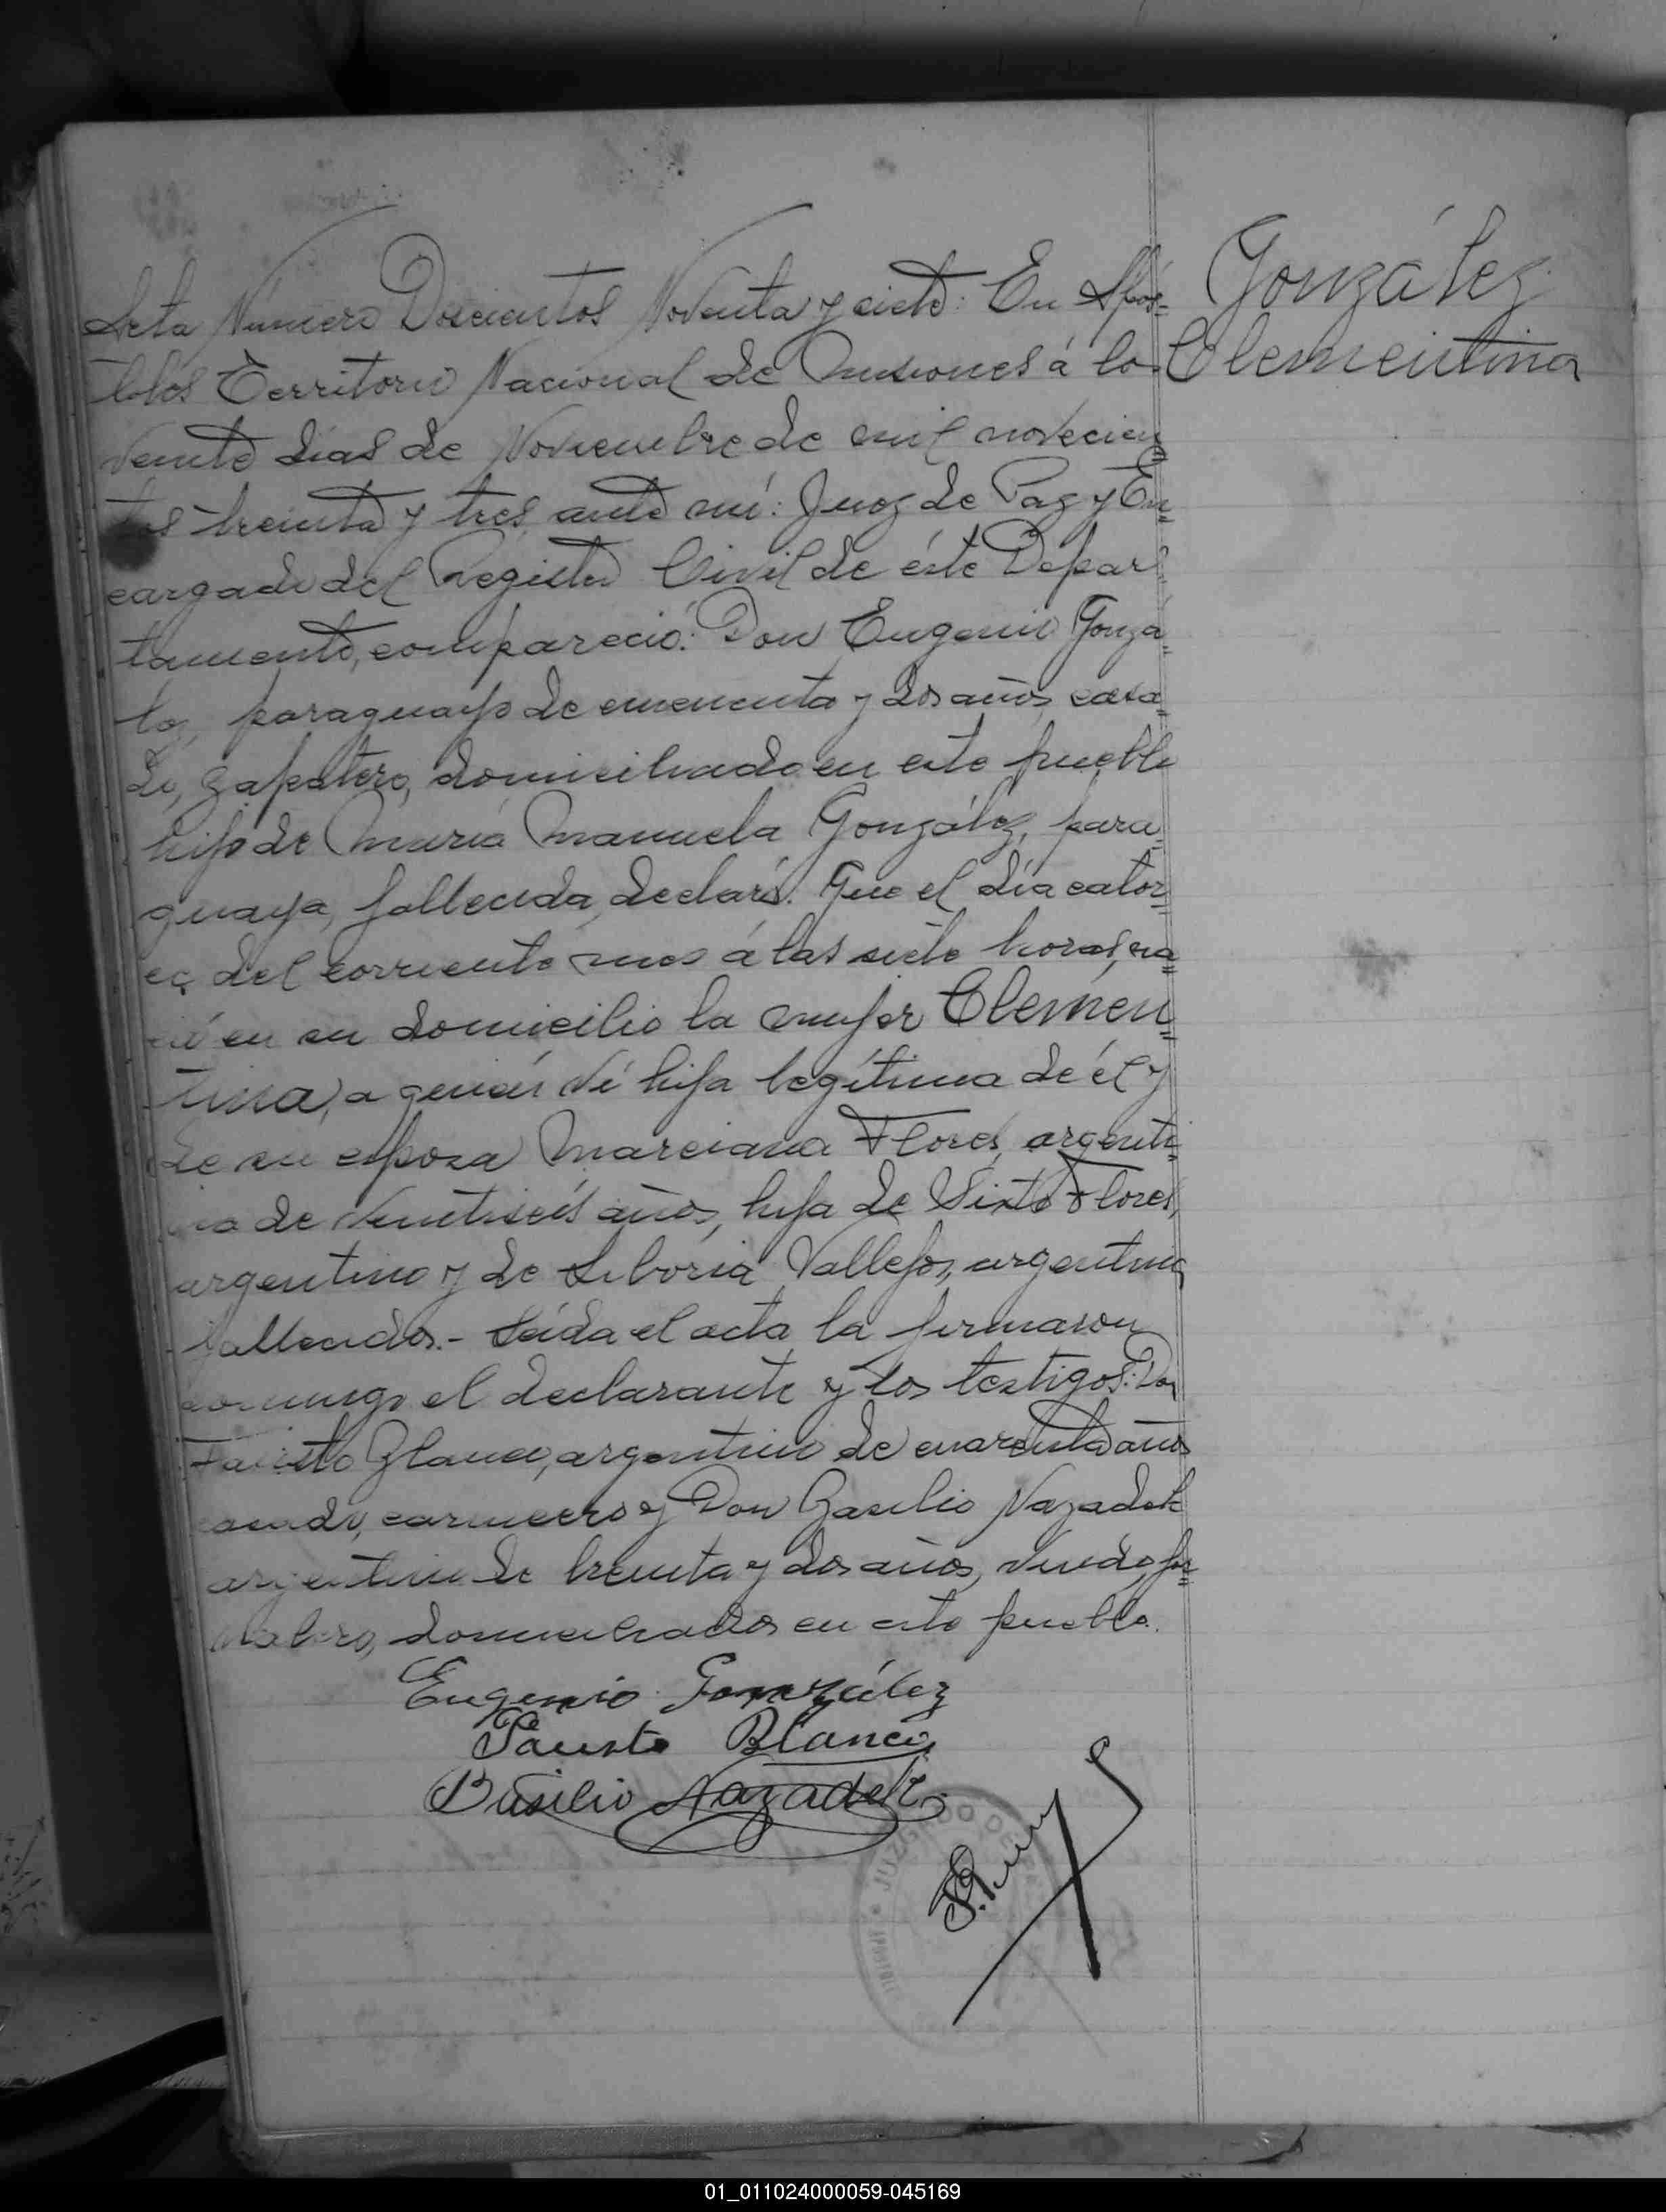 Acta Número Doscientos Noventa y siete: En Após=
toles Territorio Nacional de Misiones á los
veinte días de Noviembre de mil novecien=
tos treinta y tres, ante mí: Juez de Paz y En=
cargado del Registro Civil de éste Depar=
tamento, compareció: Don Eugenio Gonza=
lez, paraguayo de cincuenta y dos años, casa=
do, zapatero, domiciliado en este pueblo
hijo de María Manuela González, para=
guaya, fallecida, declaró: Que el día cator=
ce del corriente mes á las siete horas, na=
ció en su domicilio la mujer Clemen=
tina, a quien ví hija legítima de él y
de su esposa Marciana Flores, argenti=
na de veintiseis años, hija de Sixto Flores,
argentino y de Liboria Vallejos, argentina
fallecidos.- Leída el acta la firmaron
conmigo el declarante y los testigos: Don
Fausto Blanco, argentino de cuarenta años
casado, carnicero y Don Basilio Nazadek
argentino de treinta y dos años, viudo, jor=
nalero, domiciliados en este pueblo.
González
Clementina
Eugenio González
Fausto Blanco
Basilio Nazadek
JUZGADO DE
APOSTOLES
01_011024000059-045169